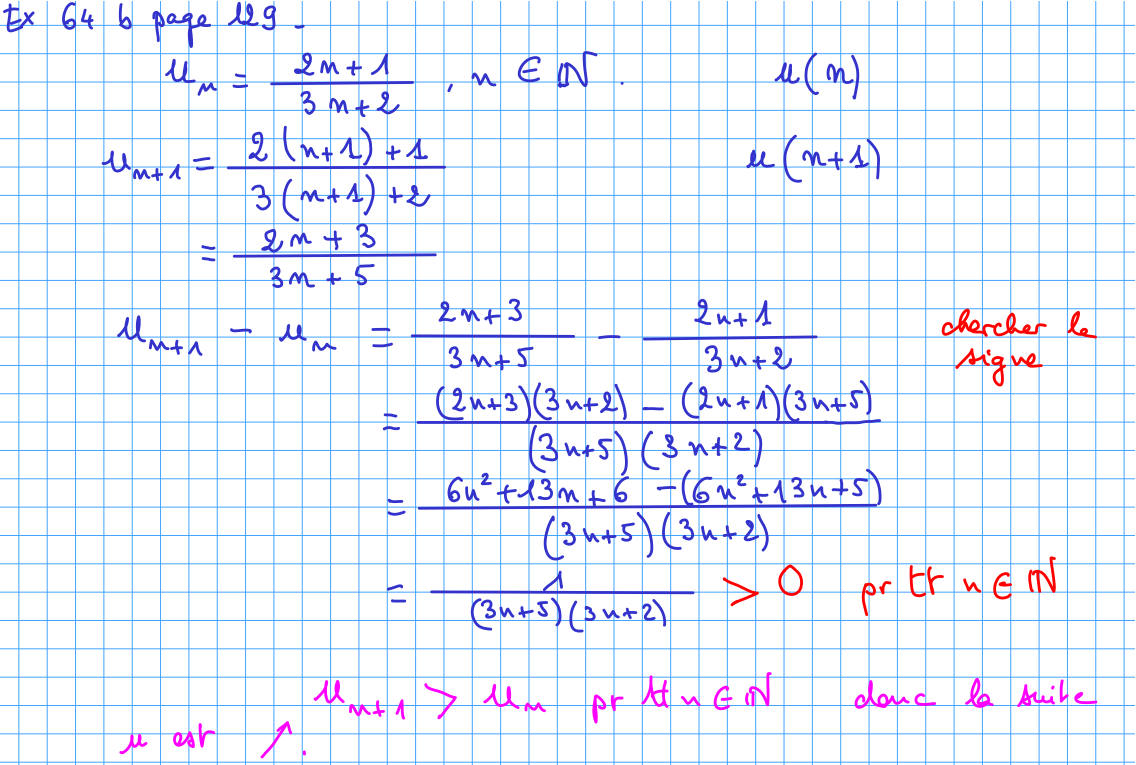 Ex 64 b page 129.
u_n = (2n+1)/(3n+2) , n ∈ ℕ. u(n)
u_{n+1} = (2(n+1)+1)/(3(n+1)+2) u(n+1)
= (2n+3)/(3n+5)
u_{n+1} - u_n = (2n+3)/(3n+5) - (2n+1)/(3n+2) chercher le signe
= ((2n+3)(3n+2) - (2n+1)(3n+5))/((3n+5)(3n+2))
= (6n²+13n+6 -(6n²+13n+5))/((3n+5)(3n+2))
= 1/((3n+5)(3n+2)) > 0 pr tt n ∈ ℕ
u_{n+1} > u_n pr tt n ∈ ℕ donc la suite
u est ↗.